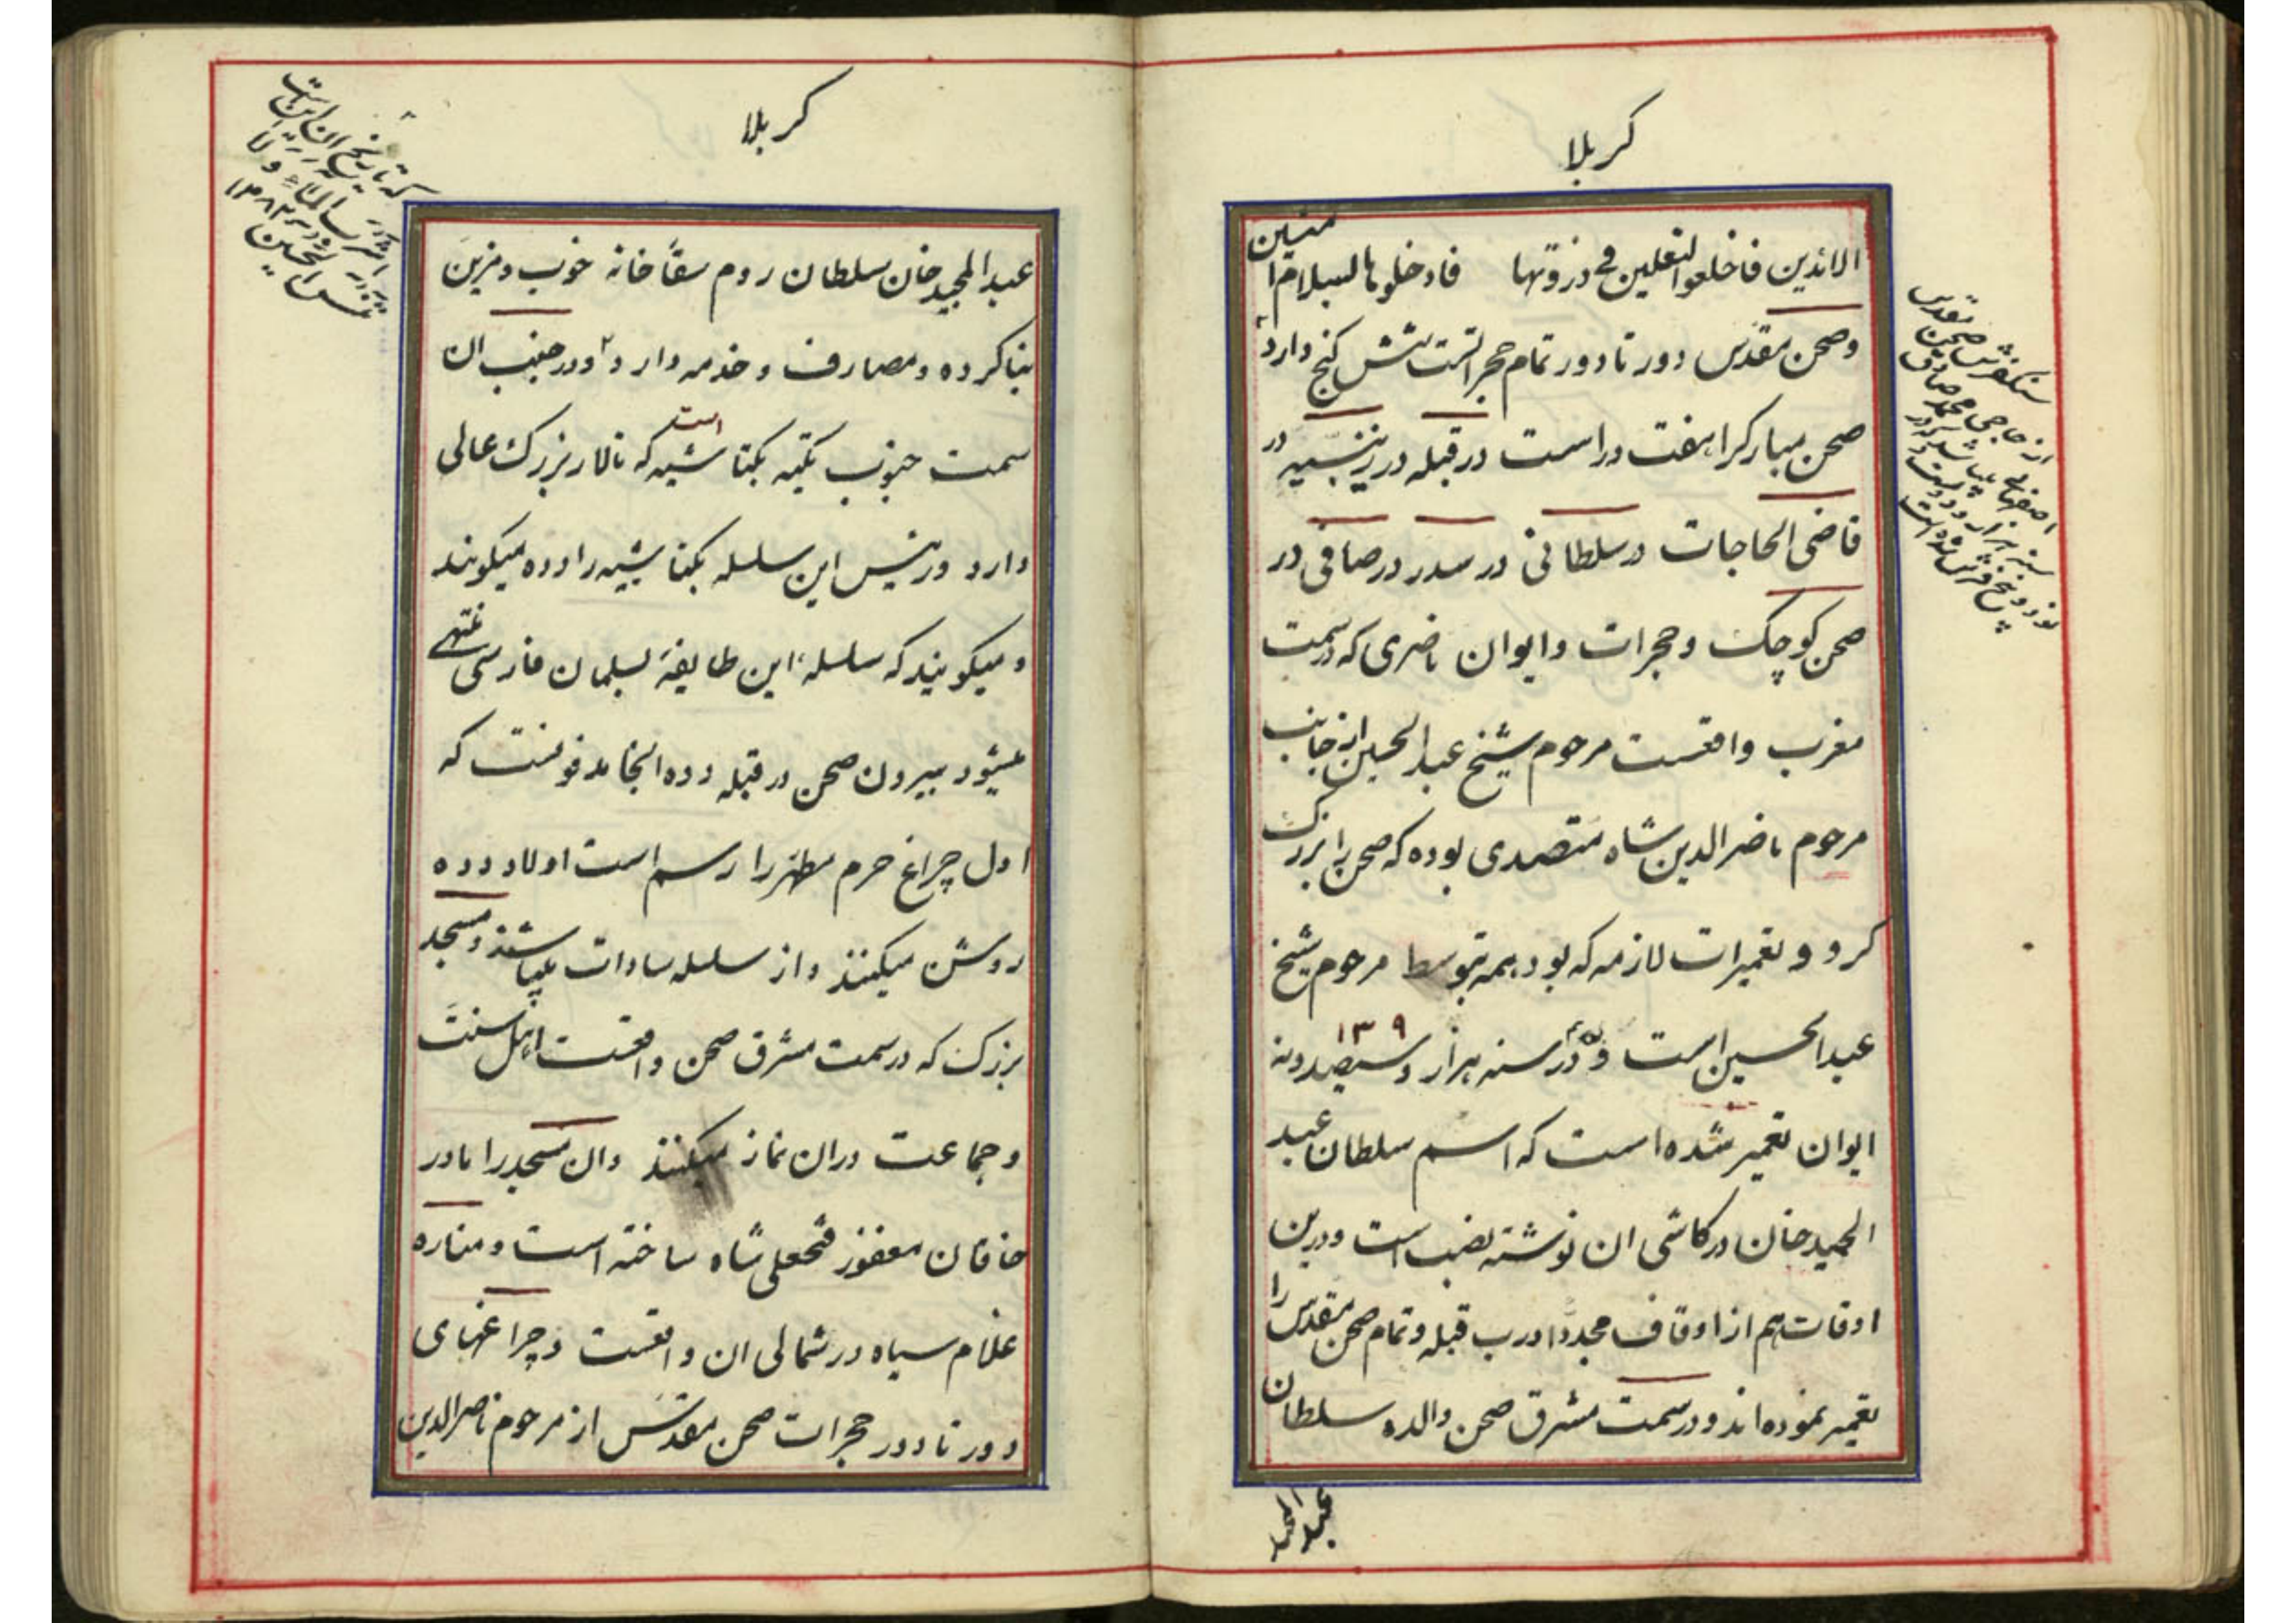 کربلا
الائذین فاخلعوا النعلین فی درزوتها فادخلوها السلام امنین
وصحن مقدس دور تا دور تمام حجراتست شش کنج دارد
صحن مبارکرا هفت در است در قبله در زینبیه در
قاضی الحاجات در سلطانی در سدر در صافی در
صحن کوچک و حجرات و ایوان ناصری که در سمت
مغرب واقعست مرحوم شیخ عبدالحسین از جانب
مرحوم ناصرالدین شاه متصدی بوده که صحن را بزرک
کرد و تعمیرات لازمه که بود همه بتوسط مرحوم شیخ
عبدالحسین است و در سنه هزار و سیصد و نه ۱۳۰۹
ایوان تعمیر شده است که اسم سلطان عبد
الحمید خان در کاشی ان نوشته نصب است و درین
اوقات هم از اوقاف مجددا درب قبله و تمام صحن مقدس را
تعمیر نموده اند و در سمت مشرق صحن والده سلطان
عبدالمجید
سنکفرش صحن مقدس
از حاجی محمد صادق
اصفهانی میباشد که در
سنه هزار و دویست و
نود و پنج فرش شده است
کربلا
عبدالمجید خان سلطان روم سقا خانه خوب و مزین
بنا کرده و مصارف و خدمه دارد و در جنب ان
سمت جنوب تکیه بکتاشیه است که تالار بزرک عالی
دارد و رئیس این سلسله بکتاشیه را دده میکویند
و میکویند که سلسله این طایفه بسلمان فارسی منتهی
میشود بیرون صحن در قبله دده انجا مدفونست که
اول چراغ حرم مطهر را رسم است اولاد دده
روشن میکنند و از سلسله سادات میباشند و مسجد
بزرک که در سمت مشرق صحن واقعست اهل سنت
و جماعت در ان نماز میکنند و ان مسجد را مادر
خاقان مغفور فتحعلی شاه ساخته است و مناره
غلام سیاه در شمالی ان واقعست و چراغهای
دور تا دور حجرات صحن مقدس از مرحوم ناصرالدین
که تاریخ ان این است
اشرب الماء و لا
تنس الحسین ۱۲۸۲